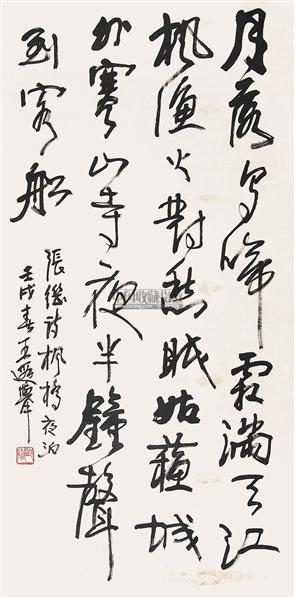 月落烏啼霜滿天江
楓漁火對愁眠姑蘇城
外寒山寺夜半鐘聲
到客船
張繼詩楓橋夜泊
壬戌春王遐舉